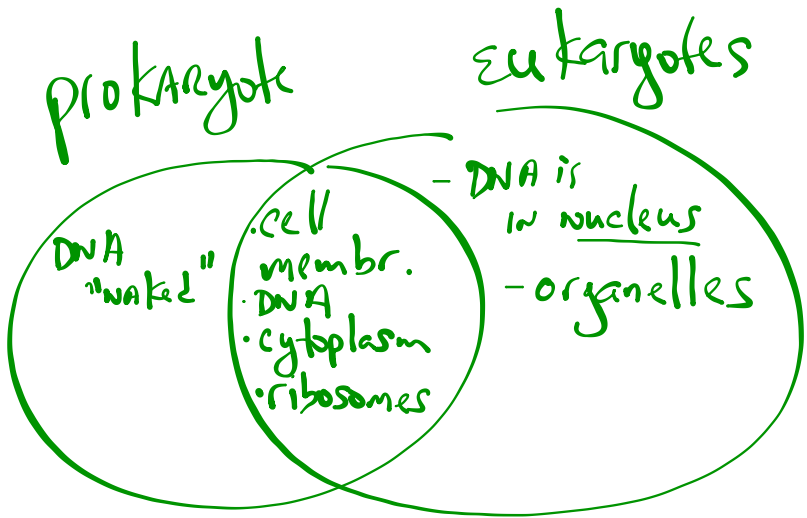 prokaryote
eukaryotes
DNA
"naked"
· cell
membr.
· DNA
· cytoplasm
· ribosomes
- DNA is
in nucleus
- organelles